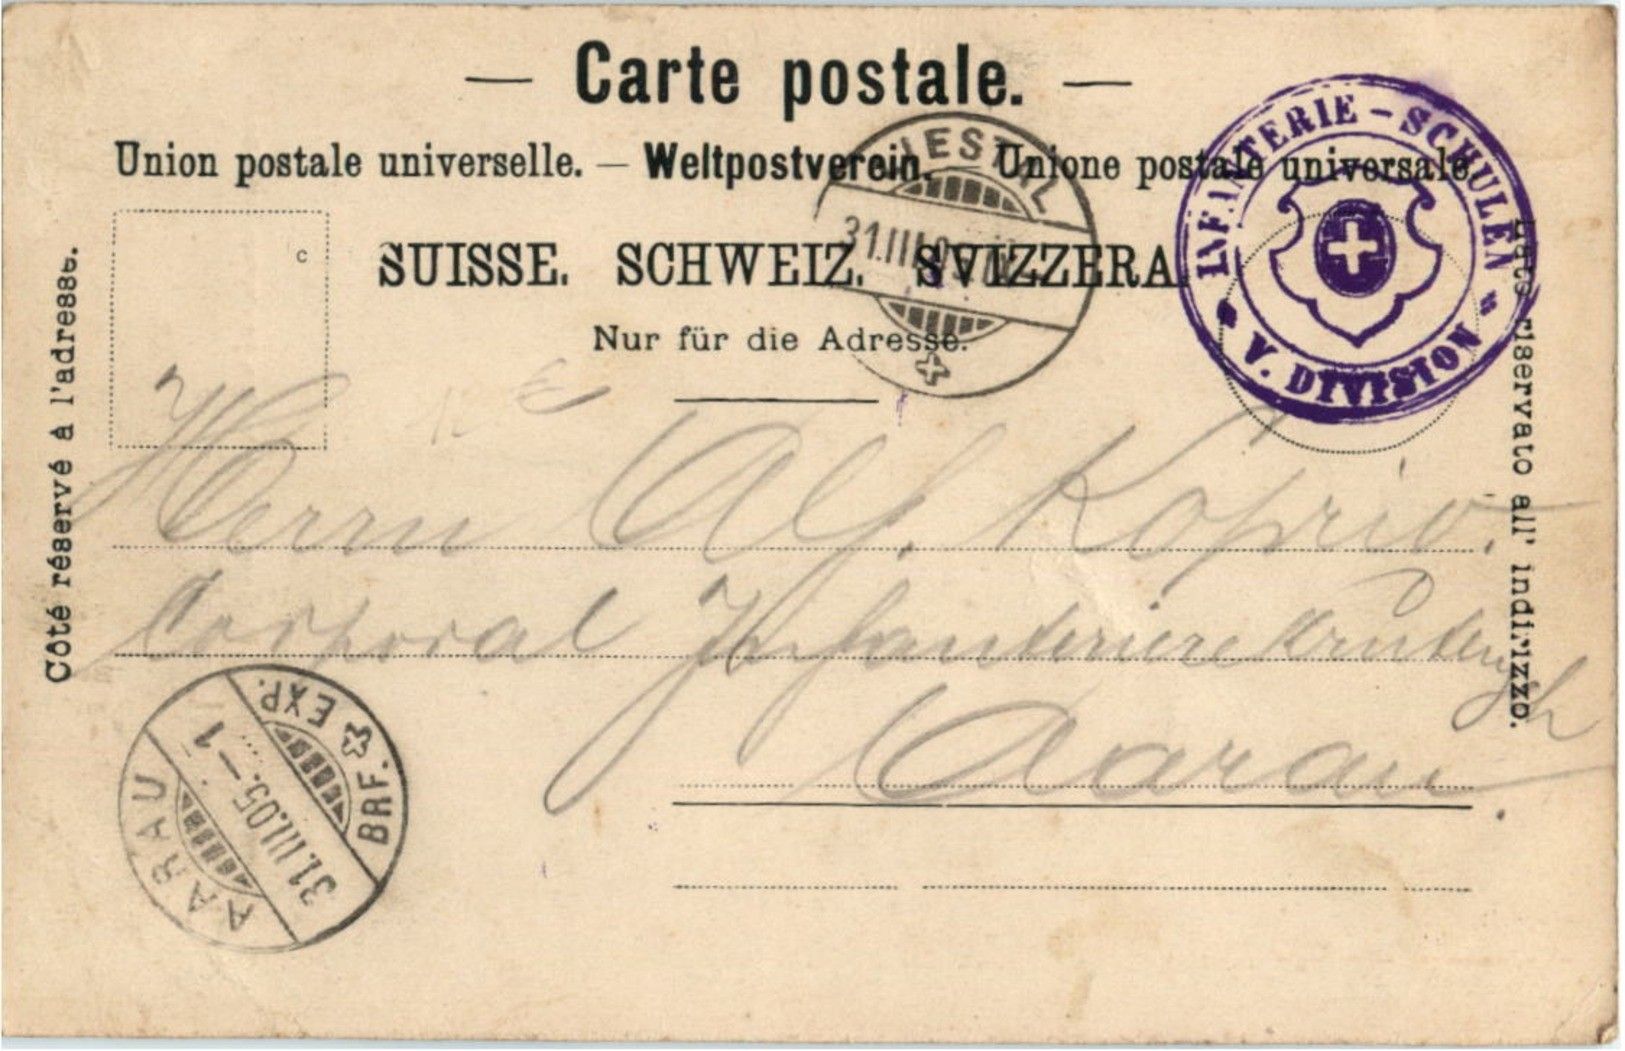 — Carte postale. —
Union postale universelle. — Weltpostverein. — Unione postale universale
SUISSE. SCHWEIZ. SVIZZERA
Nur für die Adresse.
Côté réservé à l'adresse.
Lato riservato all' indirizzo.
c
LIESTAL
31.III.05
INFANTERIE-SCHULEN
V. DIVISION
Herrn Alf. Kopriv.
Corporal Infanterie
Aarau.
AARAU
31.III.05.–1
BRF. EXP.